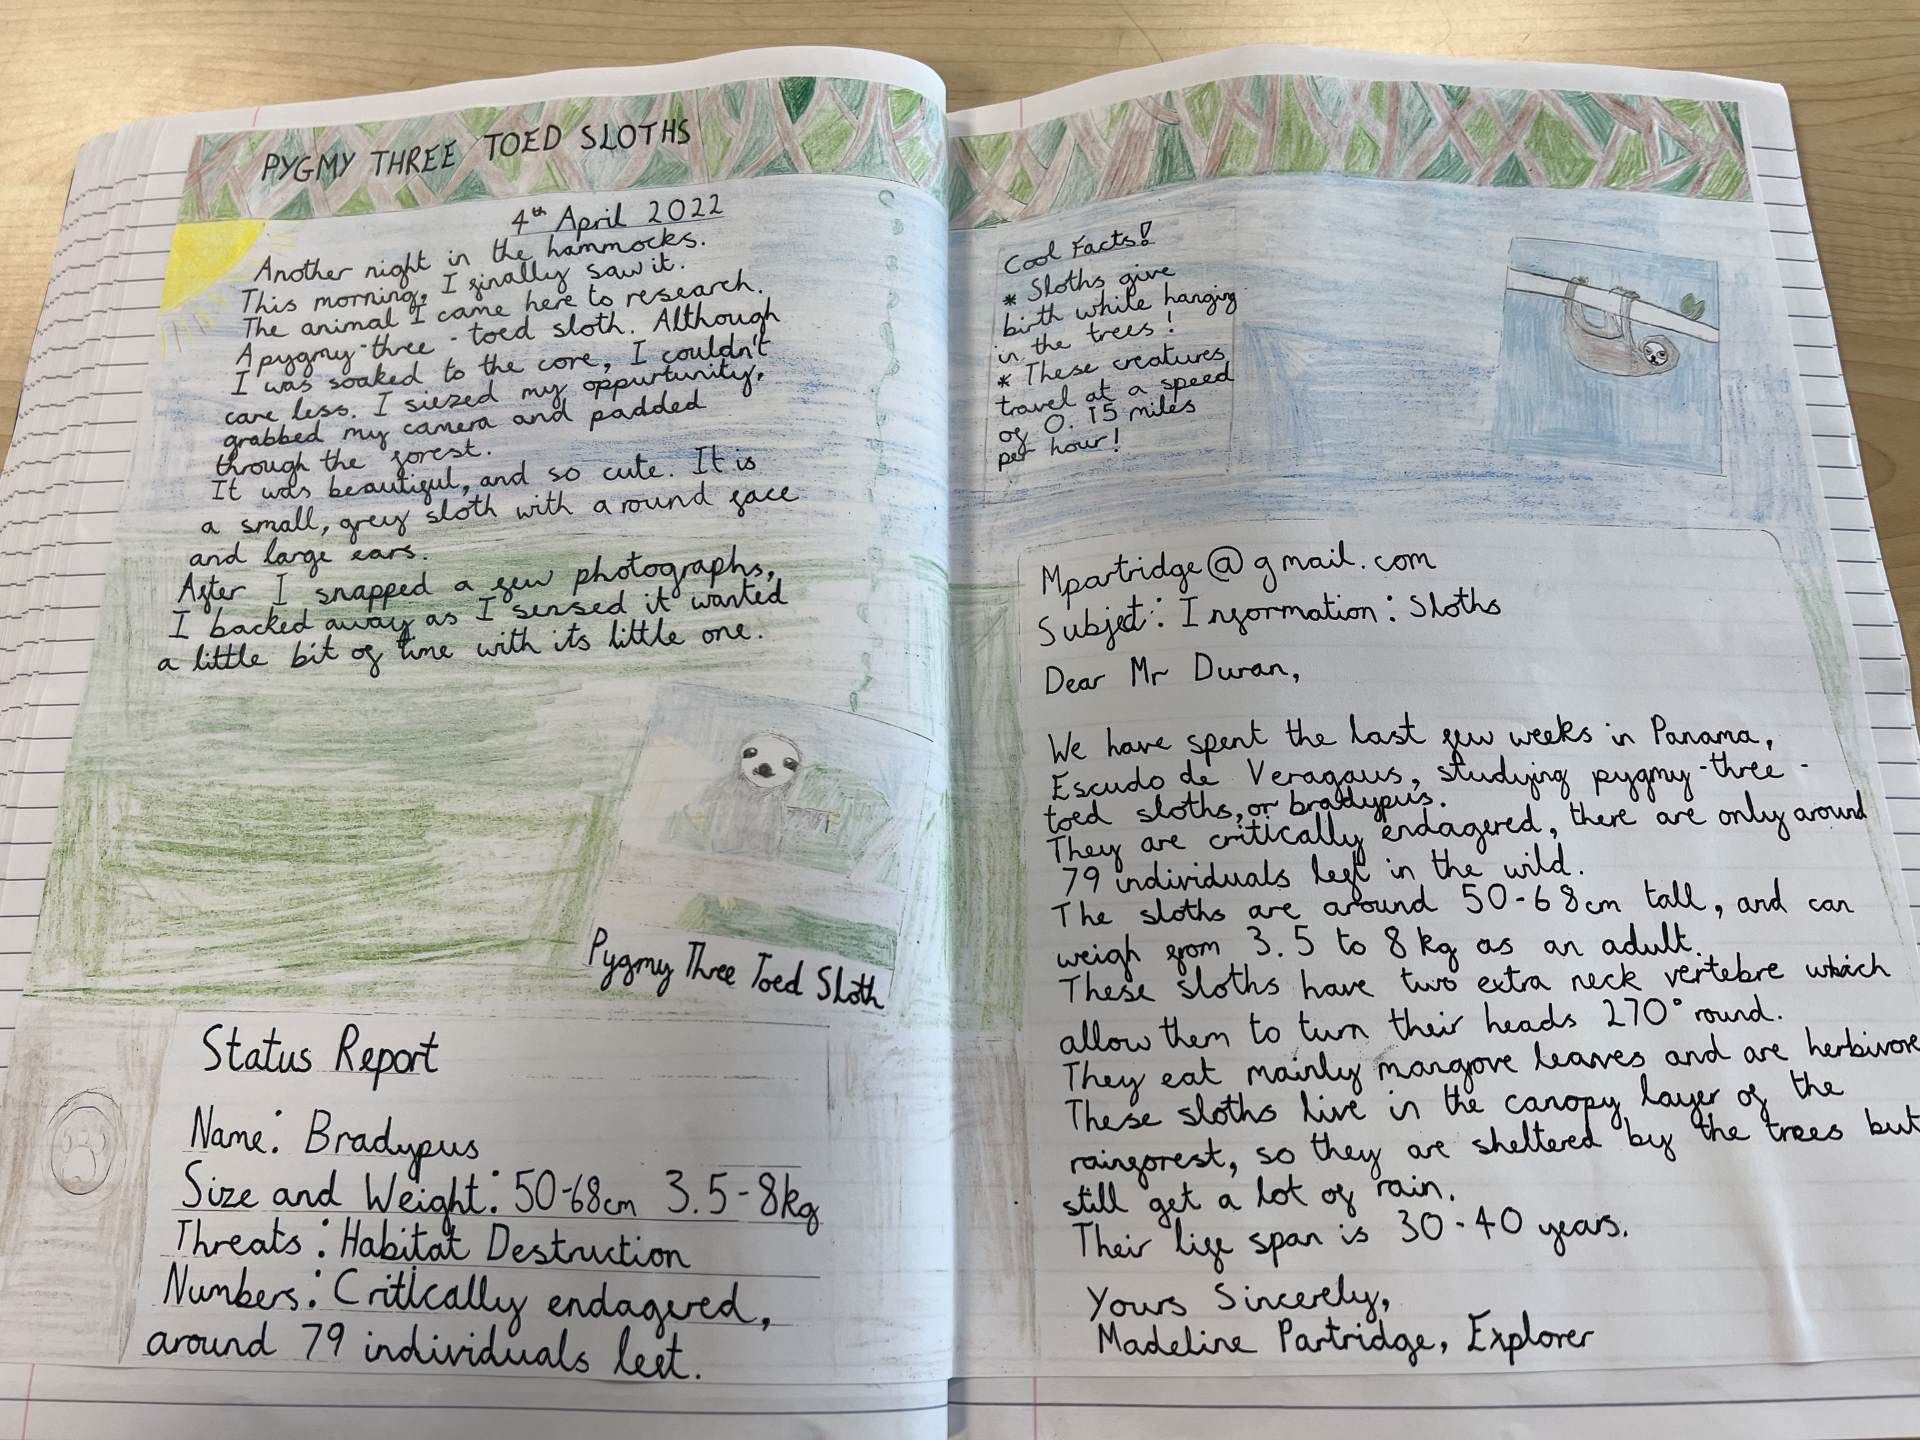 PYGMY THREE TOED SLOTHS
4th April 2022
Another night in the hammocks.
This morning, I finally saw it.
The animal I came here to research.
A pygmy-three-toed sloth. Although
I was soaked to the core, I couldn't
care less. I siezed my oppurtunity,
grabbed my camera and padded
through the forest.
It was beautiful, and so cute. It is
a small, grey sloth with a round face
and large ears.
After I snapped a few photographs,
I backed away as I sensed it wanted
a little bit of time with its little one.
Pygmy Three Toed Sloth
Status Report
Name: Bradypus
Size and Weight: 50-68cm 3.5-8kg
Threats: Habitat Destruction
Numbers: Critically endagered,
around 79 individuals left.
Cool Facts!
* Sloths give
birth while hanging
in the trees!
* These creatures
travel at a speed
of 0.15 miles
per hour!
Mpartridge@gmail.com
Subject: Information: Sloths
Dear Mr Duran,
We have spent the last few weeks in Panama,
Escudo de Veragaus, studying pygmy-three-
toed sloths, or bradypus.
They are critically endagered, there are only around
79 individuals left in the wild.
The sloths are around 50-68cm tall, and can
weigh from 3.5 to 8kg as an adult.
These sloths have two extra neck vertebre which
allow them to turn their heads 270° round.
They eat mainly mangrove leaves and are herbivore
These sloths live in the canopy layer of the
rainforest, so they are sheltered by the trees but
still get a lot of rain.
Their life span is 30-40 years.
Yours Sincerely,
Madeline Partridge, Explorer